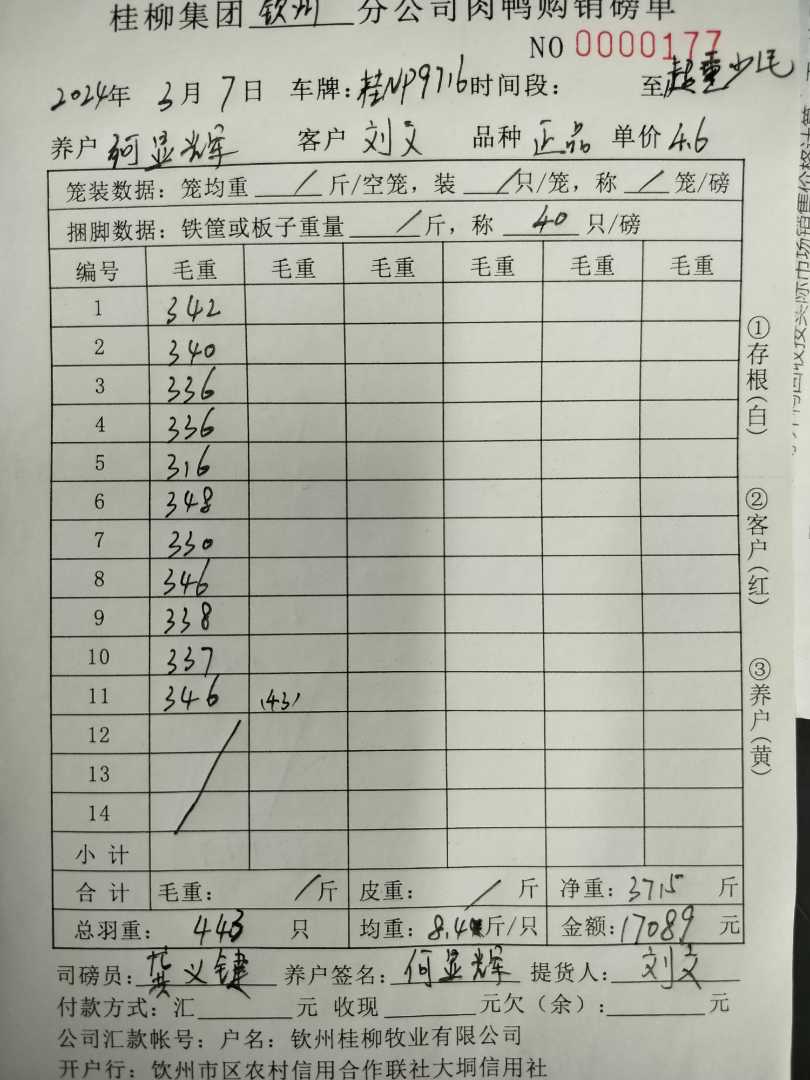 桂柳集团 钦州 分公司肉鸭购销磅单
NO 0000177
2024年 3月 7日 车牌:桂NP9716 时间段: 至
养户 何显辉 客户 刘文 品种 正品 单价 4.6
笼装数据:笼均重 / 斤/空笼,装 / 只/笼,称 / 笼/磅
捆脚数据:铁筐或板子重量 / 斤,称 40 只/磅
编号 毛重 毛重 毛重 毛重 毛重 毛重
1 342
2 340
3 336
4 336
5 316
6 348
7 330
8 346
9 338
10 337
11 346 (43)
12
13
14
小计
合计 毛重: / 斤 皮重: / 斤 净重:3715 斤
总羽重: 443 只 均重:8.4 斤/只 金额:17089 元
司磅员: 义键 养户签名:何显辉 提货人:刘文
付款方式:汇 元 收现 元欠(余): 元
公司汇款帐号:户名:钦州桂柳牧业有限公司
开户行:钦州市区农村信用合作联社大垌信用社
①存根(白)
②客户(红)
③养户(黄)